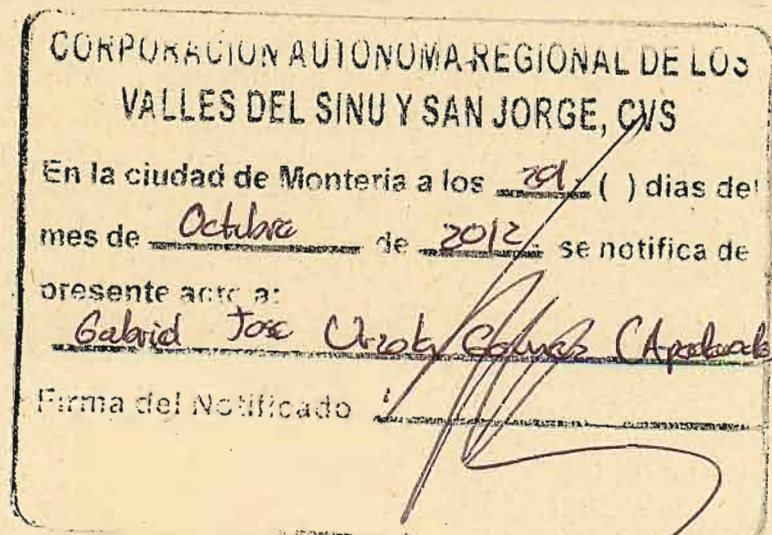 CORPORACION AUTONOMA REGIONAL DE LOS
VALLES DEL SINU Y SAN JORGE, CVS
En la ciudad de Monteria a los ( ) dias del
mes de Octubre de 2012. se notifica de
presente acto a:
Gabriel Jose (Apoderado
Firma del Notificado